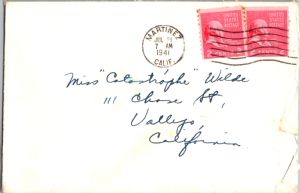 MARTINEZ
JUL
7 AM
1941
CALIF.
UNITED STATES POSTAGE
UNITED STATES POSTAGE
Miss "Catastrophe" Wilde
111 Chase St,
Vallejo,
California